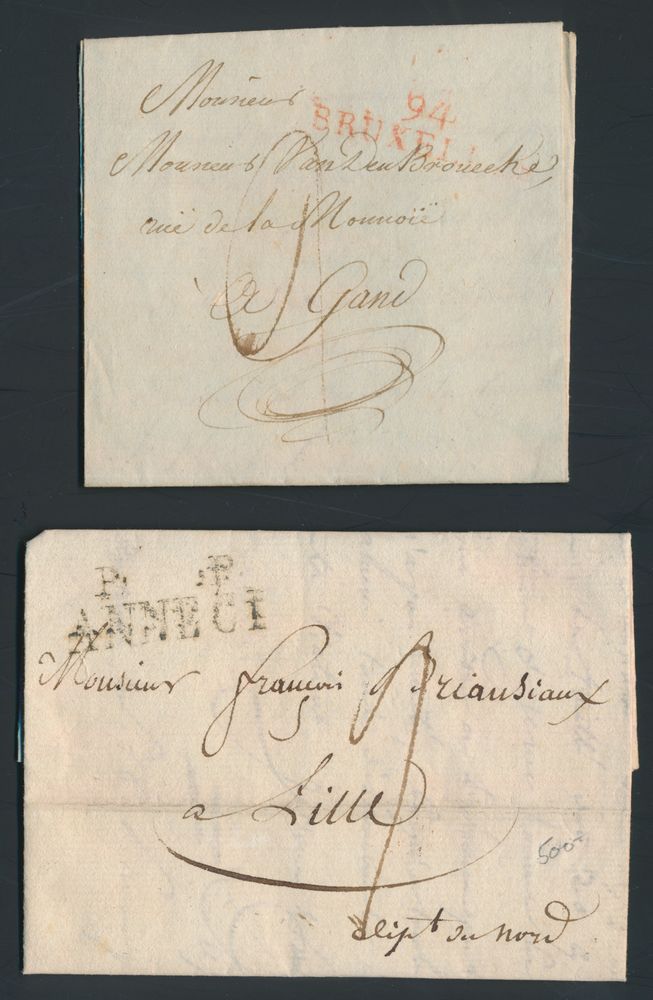 94
BRUXEL
Monsieur
Monsieur Van Den Broucke
rue de la Monnoië
à Gand
P. .P.
ANNECI
Monsieur françois Briansiaux
a Lille
500-
dept du nord